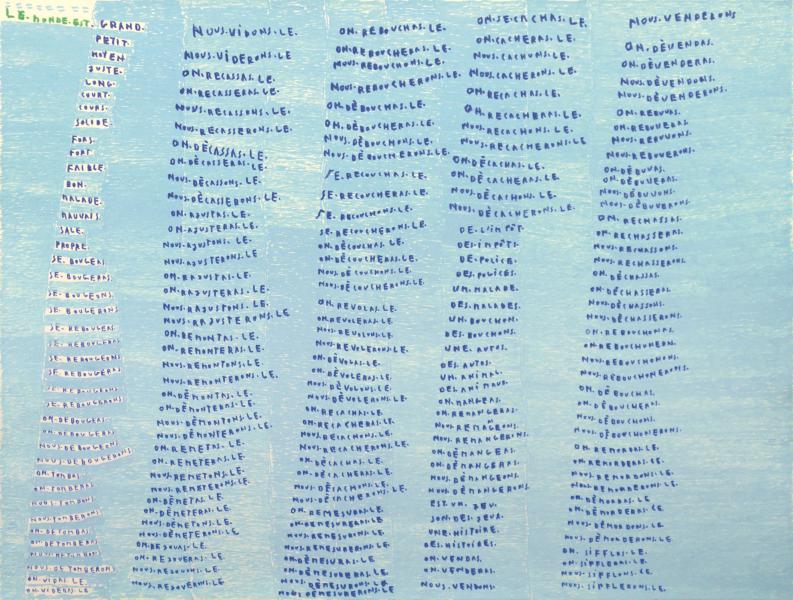 LE.MONDE.EST. GRAND.
PETIT.
MOYEN.
JUSTE.
LONG.
COURT.
COURS.
SOLIDE.
FORS.
FORT.
FAIBLE.
BON.
MALADE.
MAUVAIS.
SALE.
PROPRE.
SE.BOUGEAS.
SE.BOUGERAS.
SE.BOUGEONS.
SE.BOUGERONS.
SE.REBOUGEAS.
SE.REBOUGERAS.
SE.REBOUGEONS.
SE.REBOUGERONS.
ON.DÉBOUGEAS.
ON.DEBOUGERAS.
NOUS.DÉBOUGEONS.
NOUS.DÉBOUGERONS.
ON.TOMBAS.
ON.TOMBERAS.
NOUS.TOMBONS.
NOUS.TOMBERONS.
ON.DÉTOMBAS.
ON.DÉTOMBERAS.
NOUS.DÉTOMBERONS.
ON.VIDAS.LE.
ON.VIDERAS.LE.
NOUS.VIDONS.LE.
NOUS.VIDERONS.LE.
ON.RECASSAS.LE.
ON.RECASSERAS.LE.
NOUS.RECASSONS.LE.
NOUS.RECASSERONS.LE.
ON.DÉCASSAS.LE.
ON.DÉCASSERAS.LE.
NOUS.DÉCASSONS.LE.
NOUS.DÉCASSERONS.LE.
ON.AJUSTAS.LE.
ON.AJUSTERAS.LE.
NOUS.AJUSTONS.LE.
NOUS.AJUSTERONS.LE.
ON.RAJUSTAS.LE.
ON.RAJUSTERAS.LE.
NOUS.RAJUSTONS.LE.
NOUS.RAJUSTERONS.LE
ON.REMONTAS.LE.
ON.REMONTERAS.LE.
NOUS.REMONTONS.LE.
NOUS.REMONTERONS.LE.
ON.DÉMONTAS.LE.
ON.DÉMONTERAS.LE.
NOUS.DÉMONTONS.LE.
NOUS.DÉMONTERONS.LE.
ON.REMETAS.LE.
ON.REMETERAS.LE.
NOUS.REMETONS.LE.
NOUS.REMETERONS.LE.
ON.DÉMETAS.LE.
ON.DÉMETERAS.LE.
NOUS.DÉMETONS.LE.
NOUS.DÉMETERONS.LE.
ON.REJOUAS.LE.
ON.REJOUERAS.LE.
NOUS.REJOUONS.LE.
NOUS.REJOUERONS.LE.
ON.REBOUCHAS.LE.
ON.REBOUCHERAS.LE.
NOUS.REBOUCHONS.LE.
NOUS.REBOUCHERONS.LE.
ON.DÉBOUCHAS.LE.
ON.DÉBOUCHERAS.LE.
NOUS.DÉBOUCHONS.LE.
NOUS.DÉBOUCHERONS.LE.
SE.RECOUCHAS.LE.
SE.RECOUCHERAS.LE.
SE.RECOUCHONS.LE.
SE.RECOUCHERONS.LE.
ON.DÉCOUCHAS.LE.
ON.DÉCOUCHERAS.LE.
NOUS.DÉCOUCHONS.LE.
NOUS.DÉCOUCHERONS.LE.
ON.REVOLAS.LE.
ON.REVOLERAS.LE.
NOUS.REVOLONS.LE.
NOUS.REVOLERONS.LE.
ON.DÉVOLAS.LE.
ON.DÉVOLERAS.LE.
NOUS.DÉVOLONS.LE.
NOUS.DÉVOLERONS.LE.
ON.RECACHAS.LE.
ON.RECACHERAS.LE.
NOUS.RECACHONS.LE.
NOUS.RECACHERONS.LE.
ON.DÉCACHAS.LE.
ON.DÉCACHERAS.LE.
NOUS.DÉCACHONS.LE.
NOUS.DÉCACHERONS.LE.
ON.REMESURAS.LE.
ON.REMESURERAS.LE.
NOUS.REMESURONS.LE.
NOUS.REMESURERONS.LE.
ON.DÉMESURAS.LE.
ON.DÉMESURERAS.LE.
NOUS.DÉMESURONS.LE.
NOUS.DÉMESURERONS.LE.
ON.SE.CACHAS.LE.
ON.CACHERAS.LE.
NOUS.CACHONS.LE.
NOUS.CACHERONS.LE.
ON.RECACHAS.LE.
ON.RECACHERAS.LE.
NOUS.RECACHONS.LE.
NOUS.RECACHERONS.LE
ON.DÉCACHAS.LE.
ON.DÉCACHERAS.LE.
NOUS.DÉCACHONS.LE.
NOUS.DÉCACHERONS.LE.
DE.L'IMPÔT.
DES.IMPÔTS.
DE.POLICE.
DES.POLICES.
UN.MALADE.
DES.MALADES.
UN.BOUCHON.
DES.BOUCHONS.
UNE.AUTOS.
DES.AUTOS.
UN.ANIMAL.
DES.ANIMAUX.
ON.MANGEAS.
ON.REMANGERAS.
NOUS.REMAGEONS.
NOUS.REMANGERONS.
ON.DÉMANGEAS.
ON.DÉMANGERAS.
NOUS.DÉMANGEONS.
NOUS.DÉMANGERONS.
EST.UN.JEU.
SON.DES.JEUX.
UNE.HISTOIRE.
DES.HISTOIRES.
ON.VENDAS.
ON.VENDERAS.
NOUS.VENDONS.
NOUS.VENDERONS
ON.DÉVENDAS.
ON.DÉVENDERAS.
NOUS.DÉVENDONS.
NOUS.DÉVENDERONS.
ON.REBUVAS.
ON.REBUVERAS.
NOUS.REBUVONS.
NOUS.REBUVERONS.
ON.DÉBUVAS.
ON.DÉBUVERAS.
NOUS.DÉBUVONS.
NOUS.DÉBUVERONS.
ON.RECHASSAS.
ON.RECHASSERAS.
NOUS.RECHASSONS.
NOUS.RECHASSERONS.
ON.DÉCHASSAS.
ON.DÉCHASSERAS.
NOUS.DÉCHASSONS.
NOUS.DÉCHASSERONS.
ON.REBOUCHONAS.
ON.REBOUCHONERAS.
NOUS.REBOUCHONONS.
NOUS.REBOUCHONERONS.
ON.DÉBOUCHAS.
ON.DÉBOUCHERAS.
NOUS.DÉBOUCHONS.
NOUS.DÉBOUCHONERONS.
ON.REMORDAS.LE.
ON.REMORDERAS.LE.
NOUS.REMORDONS.LE.
NOUS.REMORDERONS.LE.
ON.DÉMORDAS.LE
ON.DÉMORDERAS.LE
NOUS.DÉMORDONS.LE
NOUS.DÉMORDERONS.LE.
ON.SIFFLAS.LE.
ON.SIFFLERAS.LE.
NOUS.SIFFLONS.LE.
NOUS.SIFFLERONS.LE.